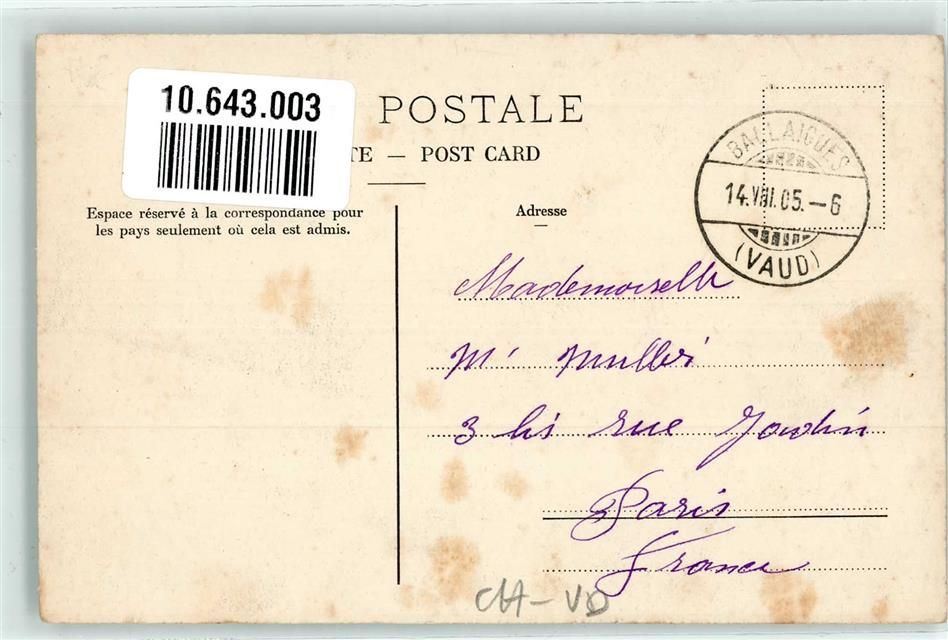 10.643.003
POSTALE
TE — POST CARD
Espace réservé à la correspondance pour
les pays seulement où cela est admis.
Adresse
BALLAIGUES
14.VIII.05.–6
(VAUD)
Mademoiselle
M
3 bis rue
Paris
France
CH–VD